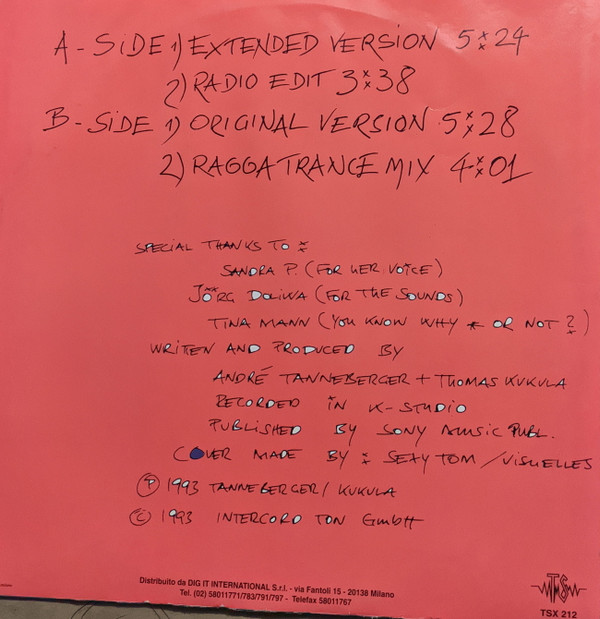 A - SiDE 1) EXTENDED VERSION 5:24
2) RADIO EDIT 3:38
B - SiDE 1) ORIGINAL VERSION 5:28
2) RAGGA TRANCE MIX 4:01
SPECIAL THANKS TO :
SANDRA P. (FOR HER VOICE)
JÖRG DOLIWA (FOR THE SOUNDS)
TINA MANN (YOU KNOW WHY * OR NOT ?)
WRITTEN AND PRODUCED BY
ANDRÉ TANNEBERGER + THOMAS KUKULA
RECORDED IN K-STUDIO
PUBLISHED BY SONY MUSIC PUBL.
COVER MADE BY : SEXY TOM / VISUELLES
Ⓟ 1993 TANNEBERGER / KUKULA
© 1993 INTERCORD TON GmbH
Distribuito da DIG IT INTERNATIONAL S.r.l. - via Fantoli 15 - 20138 Milano
Tel. (02) 58011771/783/791/797 - Telefax 58011767
TS
TSX 212